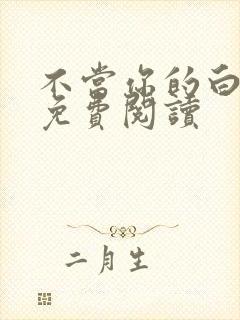 不當你的白
免費閱讀
二月生